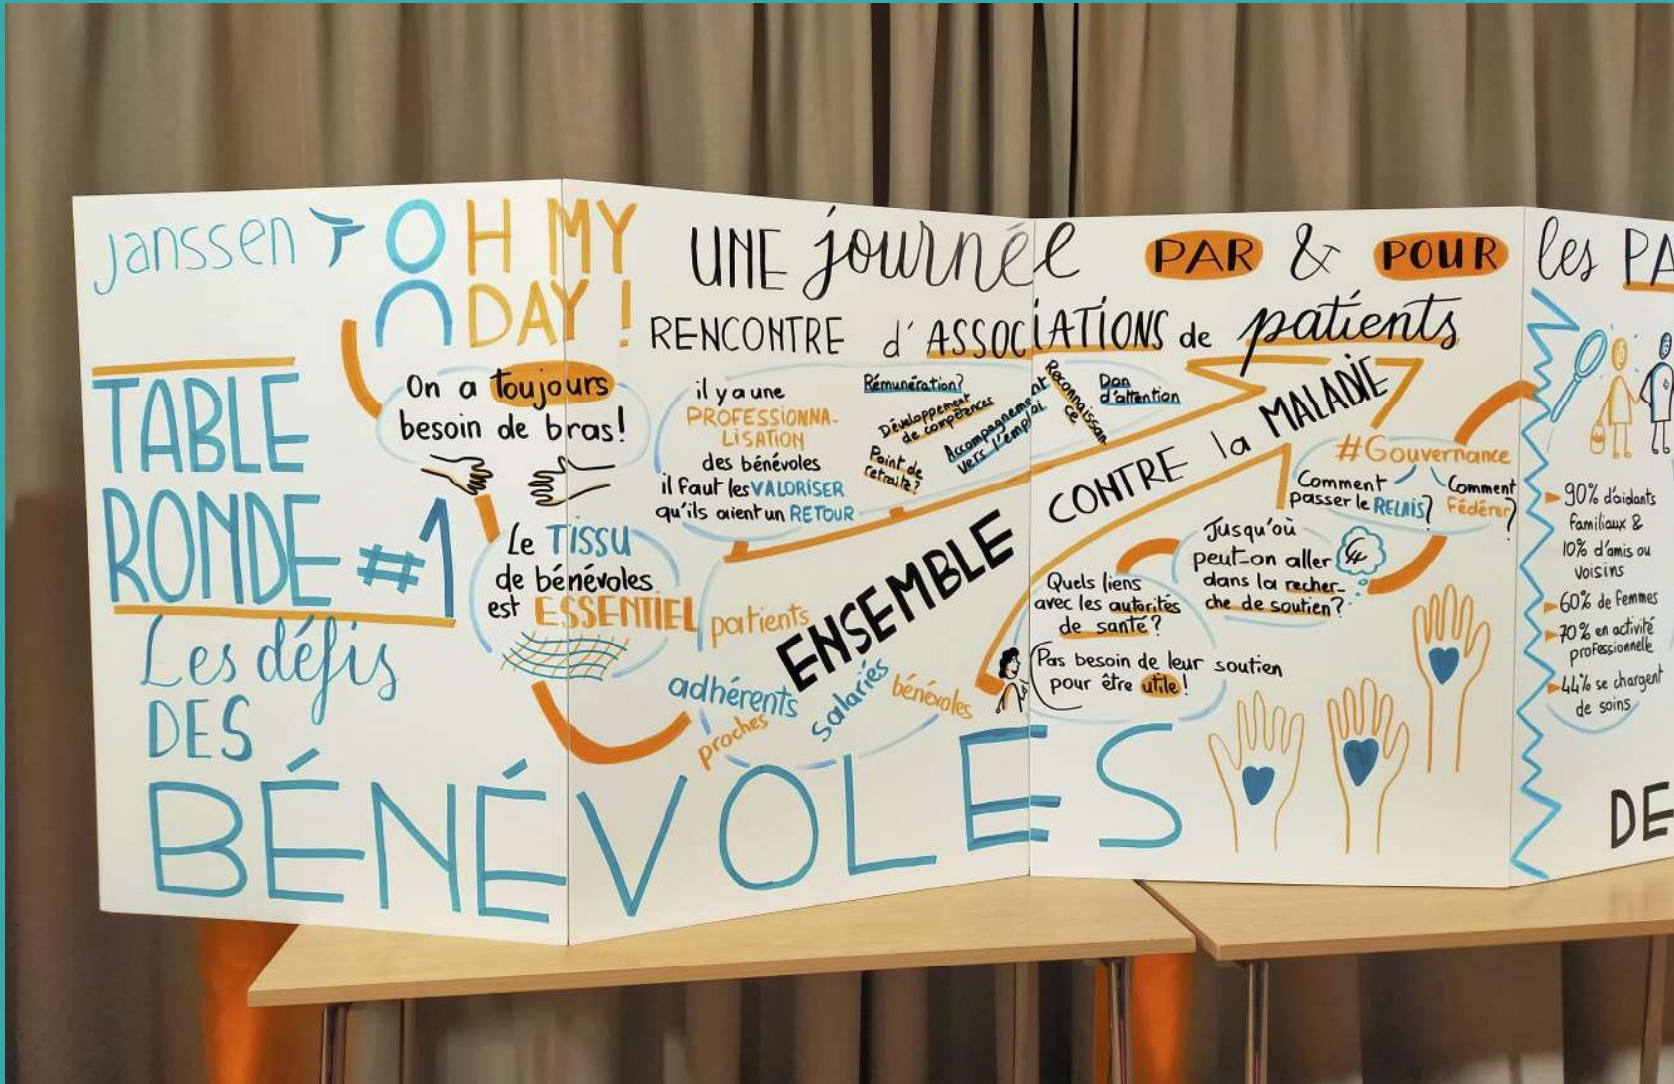 janssen
OH MY
DAY !
UNE journée PAR & POUR les PA
RENCONTRE d'ASSOCIATIONS de patients
TABLE
RONDE #1
Les défis
DES
BÉNÉVOLES
On a toujours
besoin de bras!
Le TISSU
de bénévoles
est ESSENTIEL
il y a une
PROFESSIONNA-
LISATION
des bénévoles
il faut les VALORISER
qu'ils aient un RETOUR
Rémunération?
Développement
de compétences
Point de
retraite?
Accompagnement
vers l'emploi
Reconnaissan
ce
Don
d'attention
ENSEMBLE CONTRE la MALADIE
patients
adhérents
proches
salariés
bénévoles
#Gouvernance
Comment
passer le RELAIS?
Comment
Fédérer?
Jusqu'où
peut-on aller
dans la recher-
che de soutien?
Quels liens
avec les autorités
de santé?
Pas besoin de leur soutien
pour être utile!
90% d'aidants
familiaux &
10% d'amis ou
voisins
60% de femmes
70% en activité
professionnelle
44% se chargent
de soins
DE